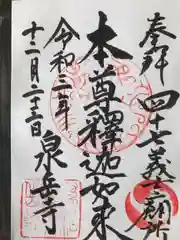 奉拝 四十七義士廟所
本尊釋迦如来
令和三年
十二月二十三日 泉岳寺